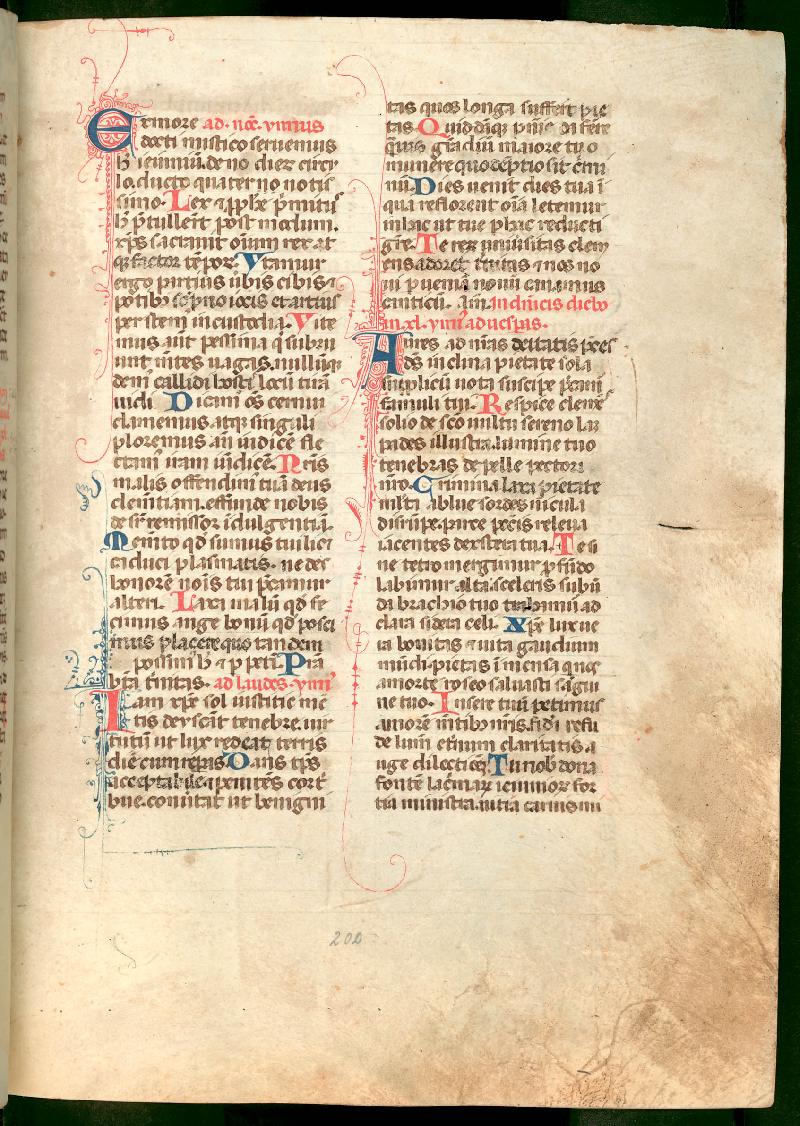 Ex more ad. noc̄. ymnus
docti mistico seruemus
h̄ ieiuniū. deno dieꝝ circu
lo. ducto quater no notis
simo. Lex ⁊ ꝓphē p̄mitus
h̄ p̄tulerūt post modum.
xp̄s sacrauit oīum rex at
qꝫ factor tēpoꝝ. Vtamur
ergo partius ūbis cibis ⁊
potibꝫ sōpno iocis et artius
perstem in custodia. Vite
mus aūt pessima q̄ subru
unt mētes uagas. nullūqꝫ
dem̄ callidi hosti locū tira
nidi. Dicam̄ oēs cernui
clamemus atqꝫ singuli
ploremus an̄ iudicē fle
ctam̄ iram uīdicē. Nrīs
malis offendim̄ tuā deus
clem̄tiam. effunde nobis
desr̄ remissor īdulgentiā.
Memto qd̄ sumus tui licꝫ
caduci plasmatis. ne des
honorē nōis tui p̄camur
alteri. Laxa malū qd̄ fe
cimus auge bonū qd̄ posci
mus placere quo tandem
possim̄ h̄ ⁊ ꝑpeti. P̄ta
bēata t̄nitas. ad laudes. ymn9
Iam xp̄e sol iustitie mē
tis deyscāt tenebre. uir
tutū ut lux redeat terris
diē cum repas. Dans tp̄s
acceptabile ⁊ penitēs cor t̄
bue. conuītat ut benigni
tas quos longa suffert pie
tas. Quiddāqꝫ pnīe da ferre
quīs gͣdiū maiore tuo
munere quo dēptio sit c̄mi
nū. Dies uenit dies tua ī
qua reflorent oīa letemur
in hac ut tue ꝑ hāc reducti
gr̄e. Te reꝝ uniūsitas clem
ens adoret t̄nitas ⁊ nos no
ui p ueniā nouū canamus
canticū. am̄. In dn̄icis diebꝫ
in xl. ymn9 ad uesp̄as.
Aures ad nr̄as deitatis p̄ces
ds̄ inclina pietate sola
supplicū uota suscipe p̄cam̄
famuli tui. Respice clemēs
solio de sco uultu sereno lā
pades illustra. lumine tuo
tenebras depelle pectori
nr̄o. Crimina laxa pietate
mlta ablue sordes uīcula
disrūpe. parce peccīs releua
iacentes dextera tua. Te si
ne tetro mergimur ꝓfūdo
labimur alta sceleris sub ū
da brachio tuo trahimur ad
clara sidera celi. Xp̄e lux ue
ra bonitas ⁊ uita gaudium
mūdi. pietas īmensa qui nos
a morte roseo saluasti sāgui
ne tuo. Insere tuū petimus
amorē mētibꝫ nr̄is. fid'i refū
de lum̄ et̄num claritatis a
uge dilectiōeꝫ. Tu nob' dona
fontē lac̄maꝝ ieiunioꝝ for
tia ministra. uitia carnis mi
200